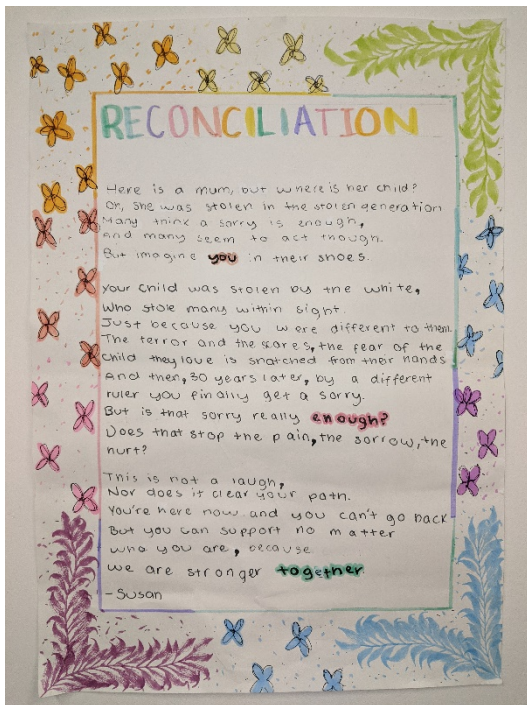 RECONCILIATION
Here is a mum, but where is her child?
Oh, she was stolen in the stolen generation
Many think a sorry is enough,
and many seem to act though.
But imagine you in their shoes.
Your child was stolen by the white,
Who stole many within sight.
Just because you were different to them.
The terror and the scares, the fear of the
child they love is snatched from their hands
And then, 30 years later, by a different
ruler you finally get a sorry.
But is that sorry really enough?
Does that stop the pain, the sorrow, the
hurt?
This is not a laugh,
Nor does it clear your path.
You're here now and you can't go back
But you can support no matter
who you are, because
we are stronger together
-Susan